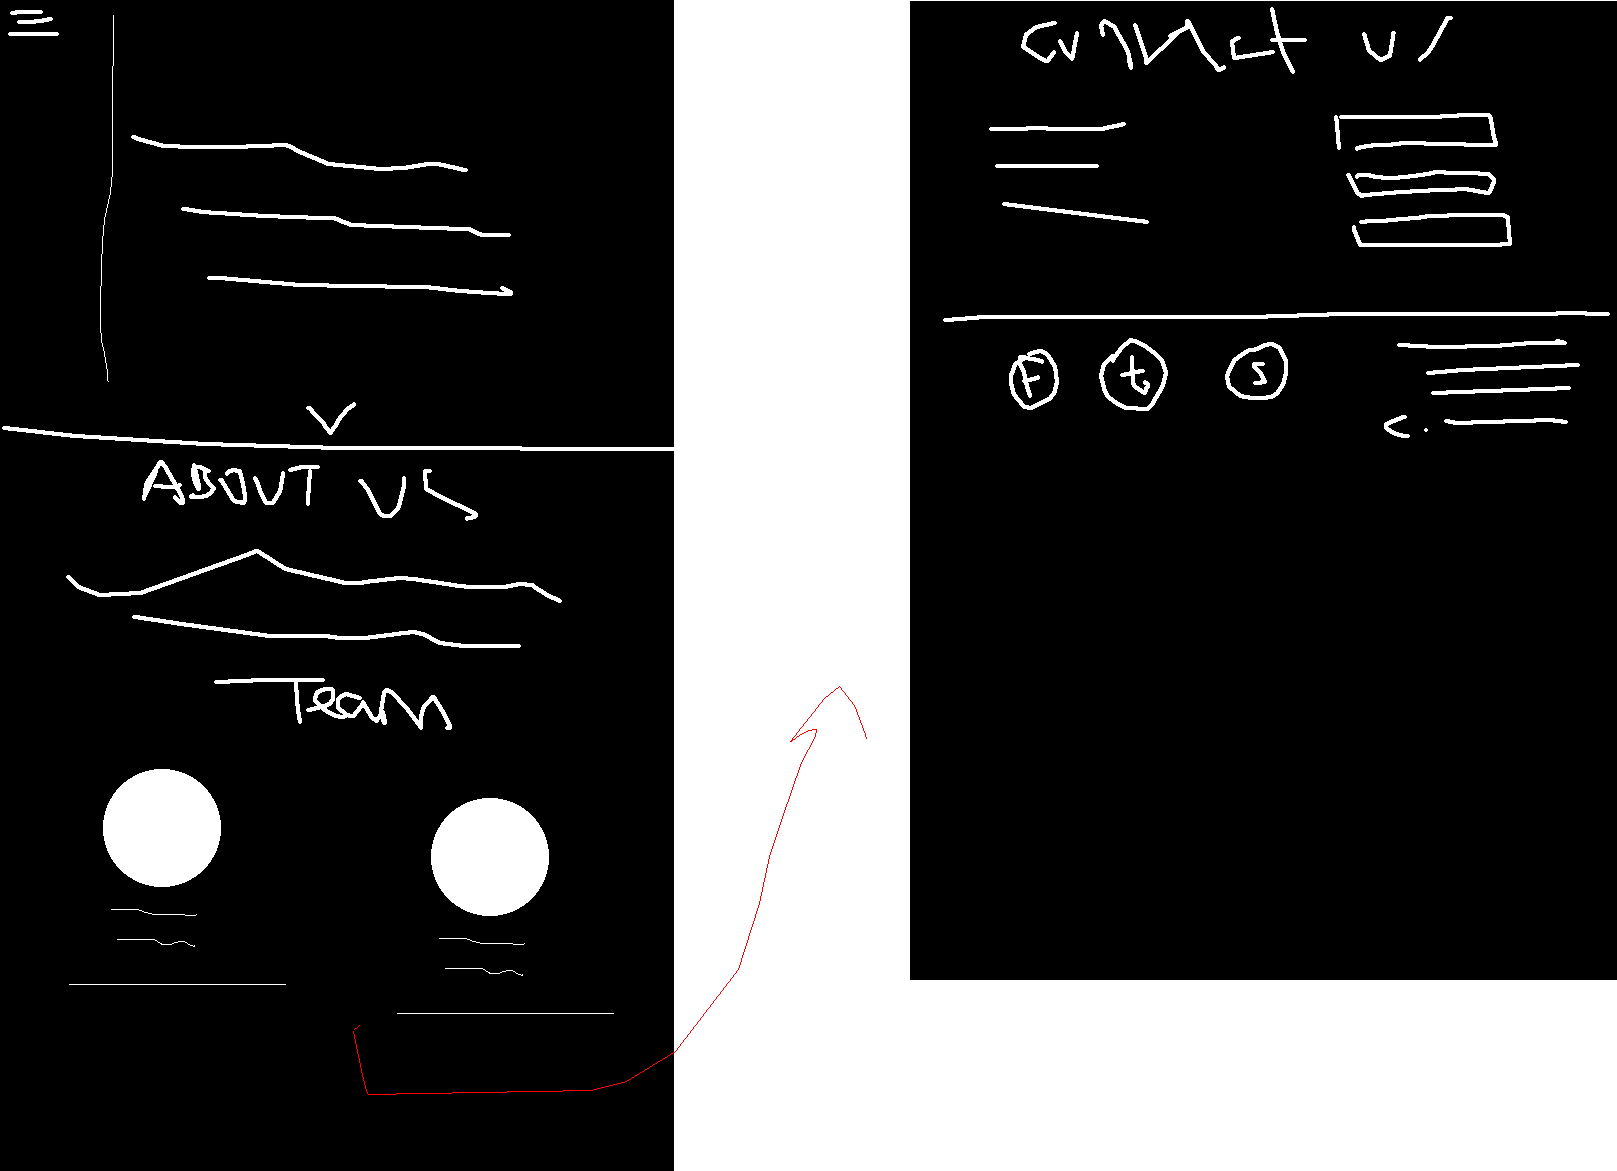 ABOUT US
Team
Contact us
F t S
C.